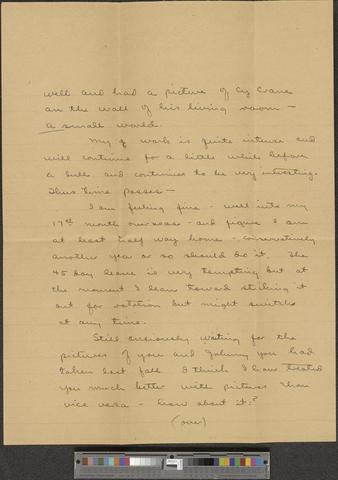 well and had a picture of Cy Crane
on the wall of his living room —
a small world.
My work is quite intense and
will continue for a little while before
a lull and continues to be very interesting.
Thus time passes —
I am feeling fine - well into my
17th month overseas - and figure I am
at least half way home - conservatively
another year or so should do it. The
45 day leave is very tempting but at
the moment I lean toward sticking it
out for rotation but might switch
at any time.
Still anxiously waiting for the
pictures of you and Johnny you had
taken last fall. I think I have treated
you much better with pictures than
vice versa - how about it?
(over)